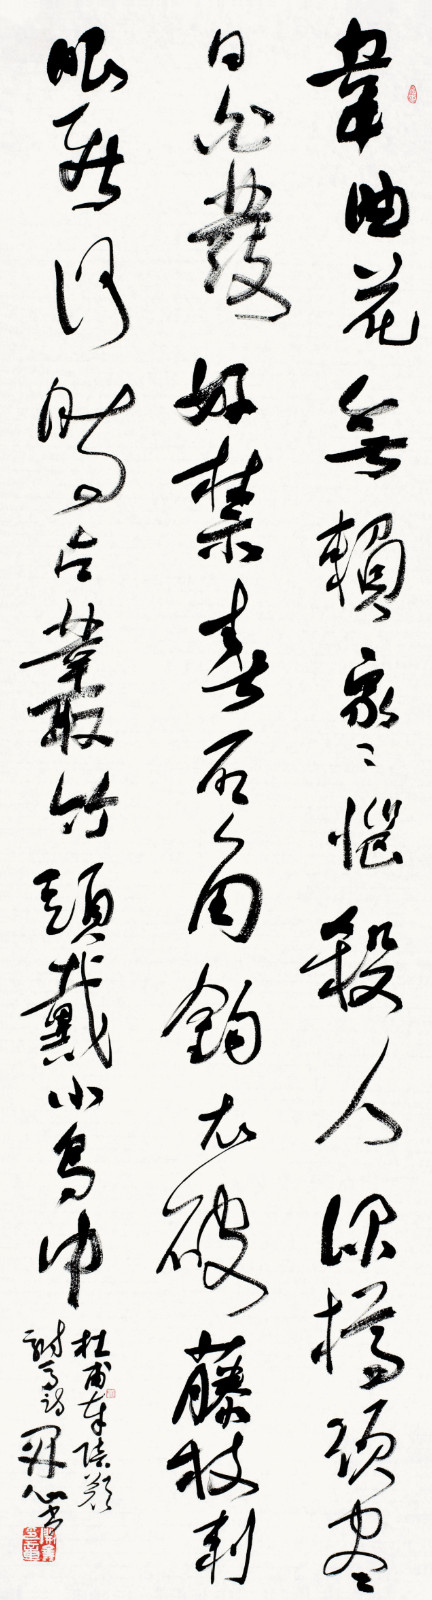 韋曲花無賴家々惱殺人緑樽須尽
日白髮好禁春石角鈎衣破藤枝刺
眼新何時占叢竹頭戴小烏巾
杜甫奉陪鄭
駙馬詩